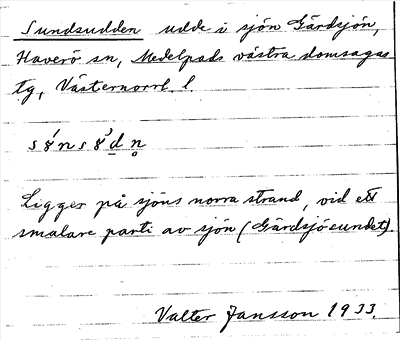 Sundsudden udde i sjön Gärdsjön,
Haverö sn, Medelpads västra domsagas
tg, Västernorrl. l.
Ligger på sjöns norra strand, vid ett
smalare parti av sjön (Gärdsjösundet).
Valter Jansson 1933.